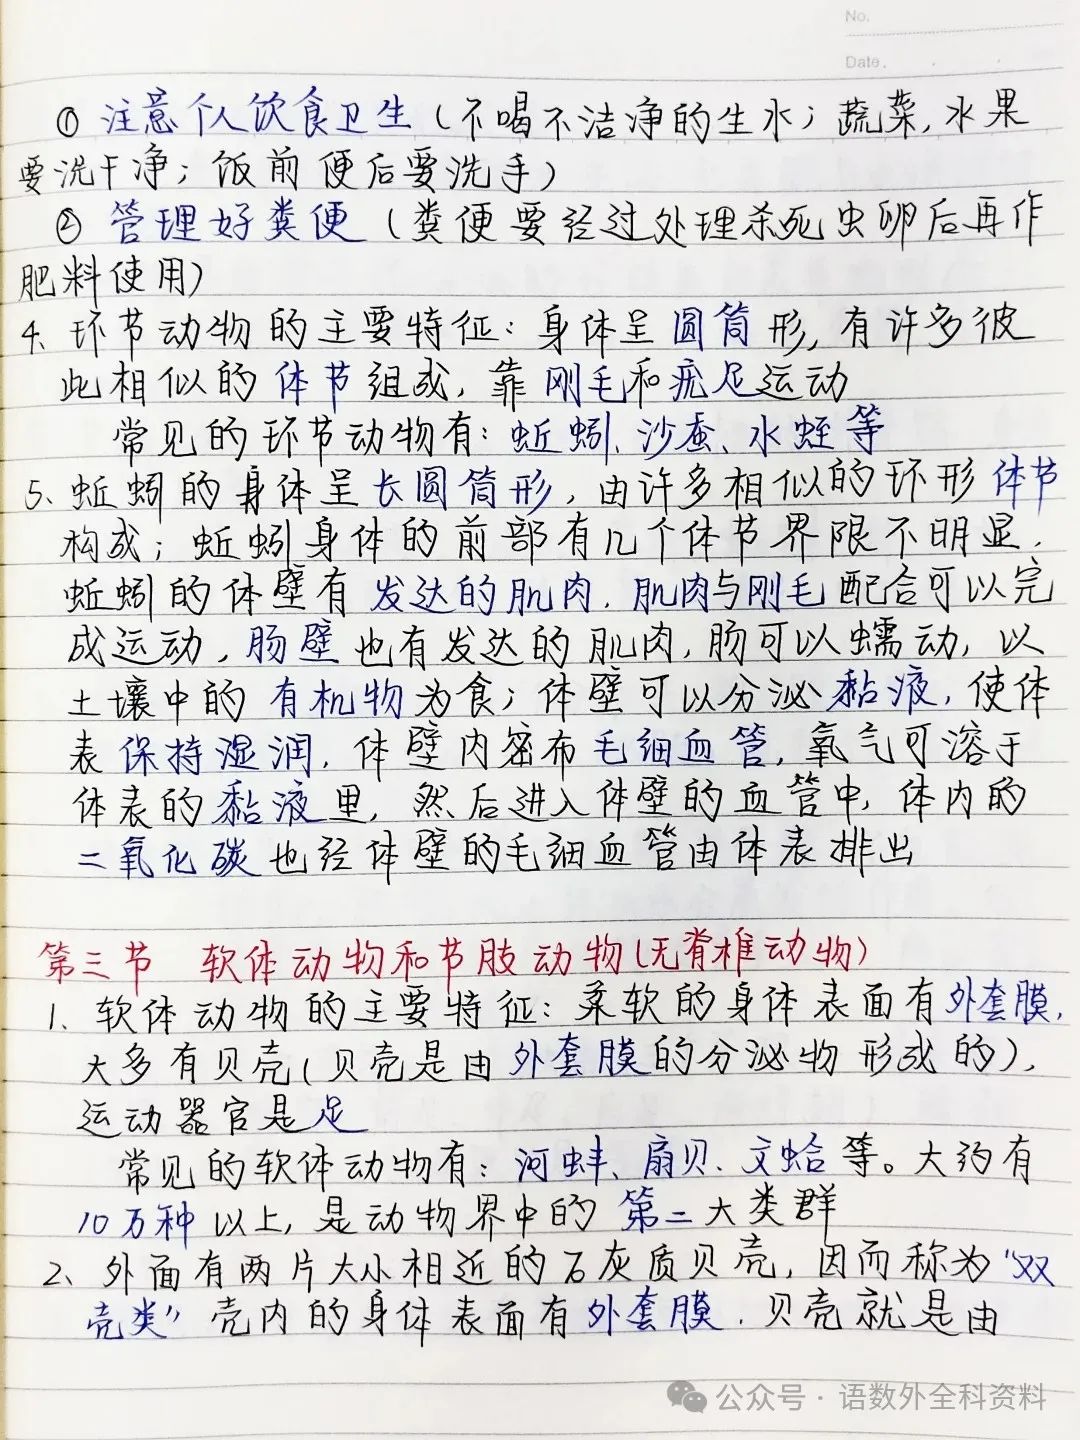 No.
Date.
① 注意个人饮食卫生（不喝不洁净的生水；蔬菜,水果
要洗干净；饭前便后要洗手）
② 管理好粪便（粪便要经过处理杀死虫卵后再作
肥料使用）
4、环节动物的主要特征：身体呈圆筒形，有许多彼
此相似的体节组成，靠刚毛和疣足运动
常见的环节动物有：蚯蚓、沙蚕、水蛭等
5、蚯蚓的身体呈长圆筒形，由许多相似的环形体节
构成；蚯蚓身体的前部有几个体节界限不明显.
蚯蚓的体壁有发达的肌肉.肌肉与刚毛配合可以完
成运动，肠壁也有发达的肌肉,肠可以蠕动，以
土壤中的有机物为食；体壁可以分泌黏液，使体
表保持湿润，体壁内密布毛细血管，氧气可溶于
体表的黏液里，然后进入体壁的血管中，体内的
二氧化碳也经体壁的毛细血管由体表排出
第三节 软体动物和节肢动物(无脊椎动物)
1、软体动物的主要特征：柔软的身体表面有外套膜,
大多有贝壳(贝壳是由外套膜的分泌物形成的)，
运动器官是足
常见的软体动物有：河蚌、扇贝、文蛤等。大约有
10万种以上，是动物界中的第二大类群
2、外面有两片大小相近的石灰质贝壳，因而称为“双
壳类”壳内的身体表面有外套膜.贝壳就是由
公众号·语数外全科资料